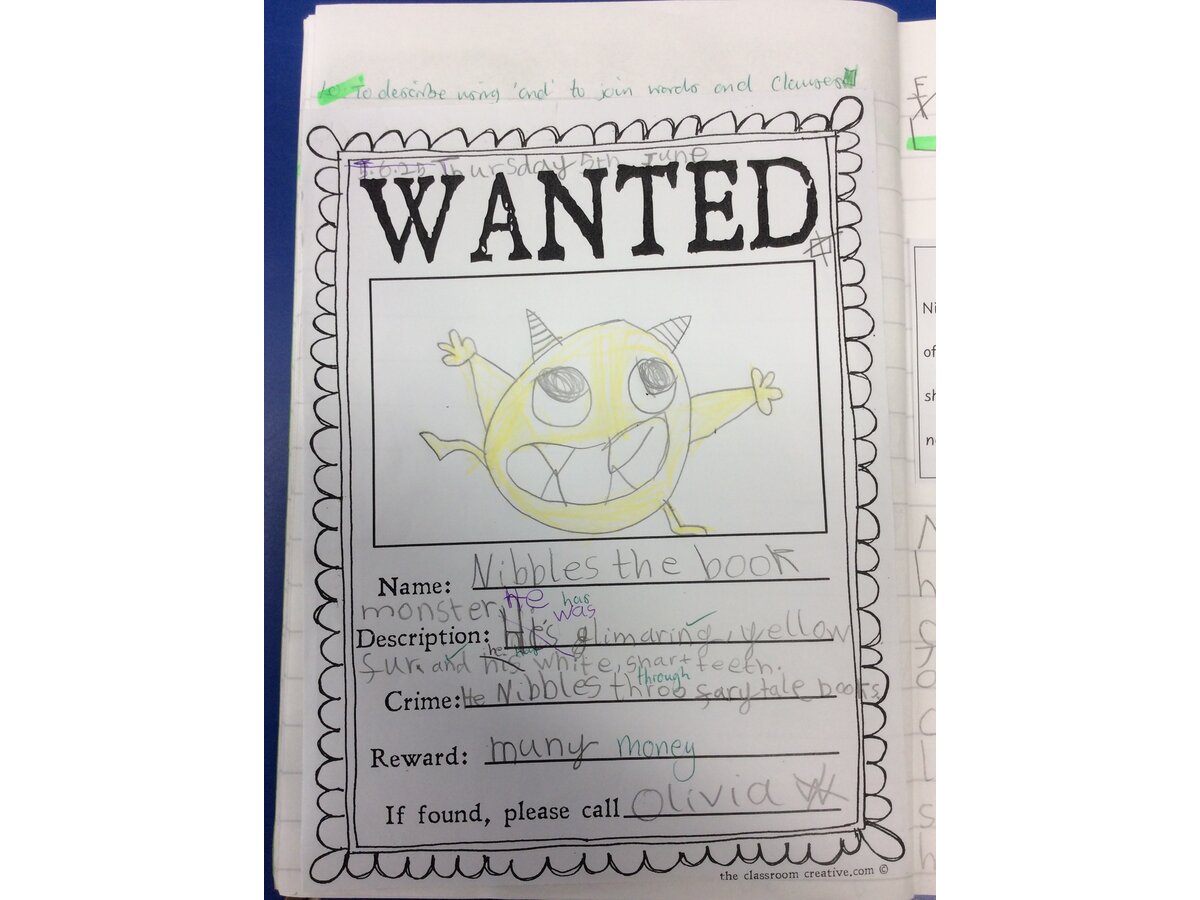 LO: To describe using 'and' to join words and clauses
5.6.25 Thursday 5th June
WANTED
Name: Nibbles the book
monster.
He has
was
Description: He's glimaring, yellow
he has
fur and his white, shart teeth.
through
Crime: He Nibbles throo farytale books.
Reward: muny money
If found, please call Olivia
the classroom creative.com ©
Ni
of
sh